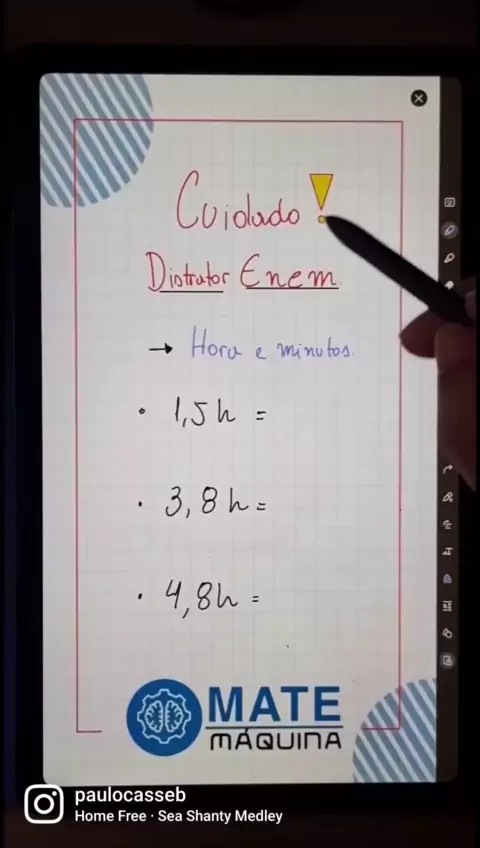 Cuidado !
Distrator Enem.
→ Hora e minutos.
• 1,5h =
• 3,8h =
• 4,8h =
MATE
MÁQUINA
paulocasseb
Home Free · Sea Shanty Medley